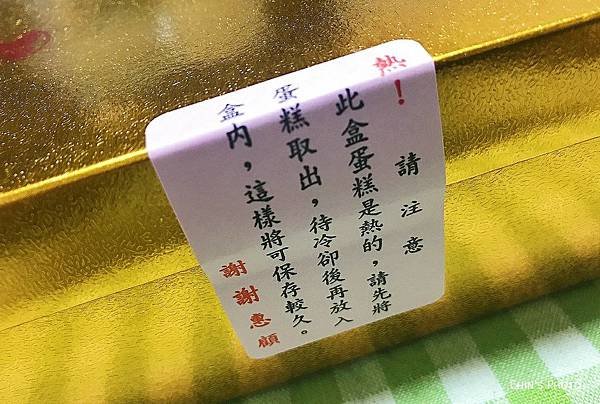 熱！ 請注意
此盒蛋糕是熱的，請先將
蛋糕取出，待冷卻後再放入
盒內，這樣將可保存較久。
謝謝惠顧
EHIN'S PHOTO